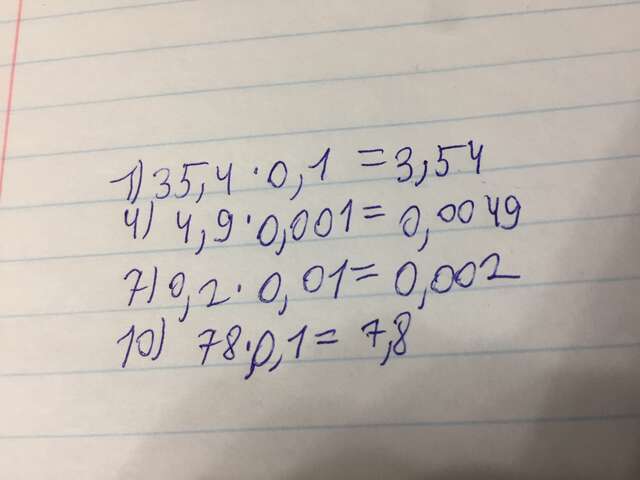 1) 35,4 · 0,1 = 3,54
4) 4,9 · 0,001 = 0,0049
7) 0,2 · 0,01 = 0,002
10) 78 · 0,1 = 7,8